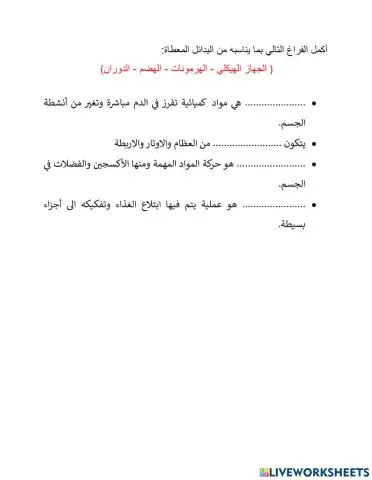 أكمل الفراغ التالي بما يناسبه من البدائل المعطاة:
( الجهاز الهيكلي - الهرمونات - الهضم - الدوران)
• ...................... هي مواد كميائية تفرز في الدم مباشرة وتغير من أنشطة
الجسم.
• يتكون ......................... من العظام والاوتار والاربطة
• ......................... هو حركة المواد المهمة ومنها الأكسجين والفضلات في
الجسم.
• ....................... هو عملية يتم فيها ابتلاع الغذاء وتفكيكه الى أجزاء
بسيطة.
LIVEWORKSHEETS